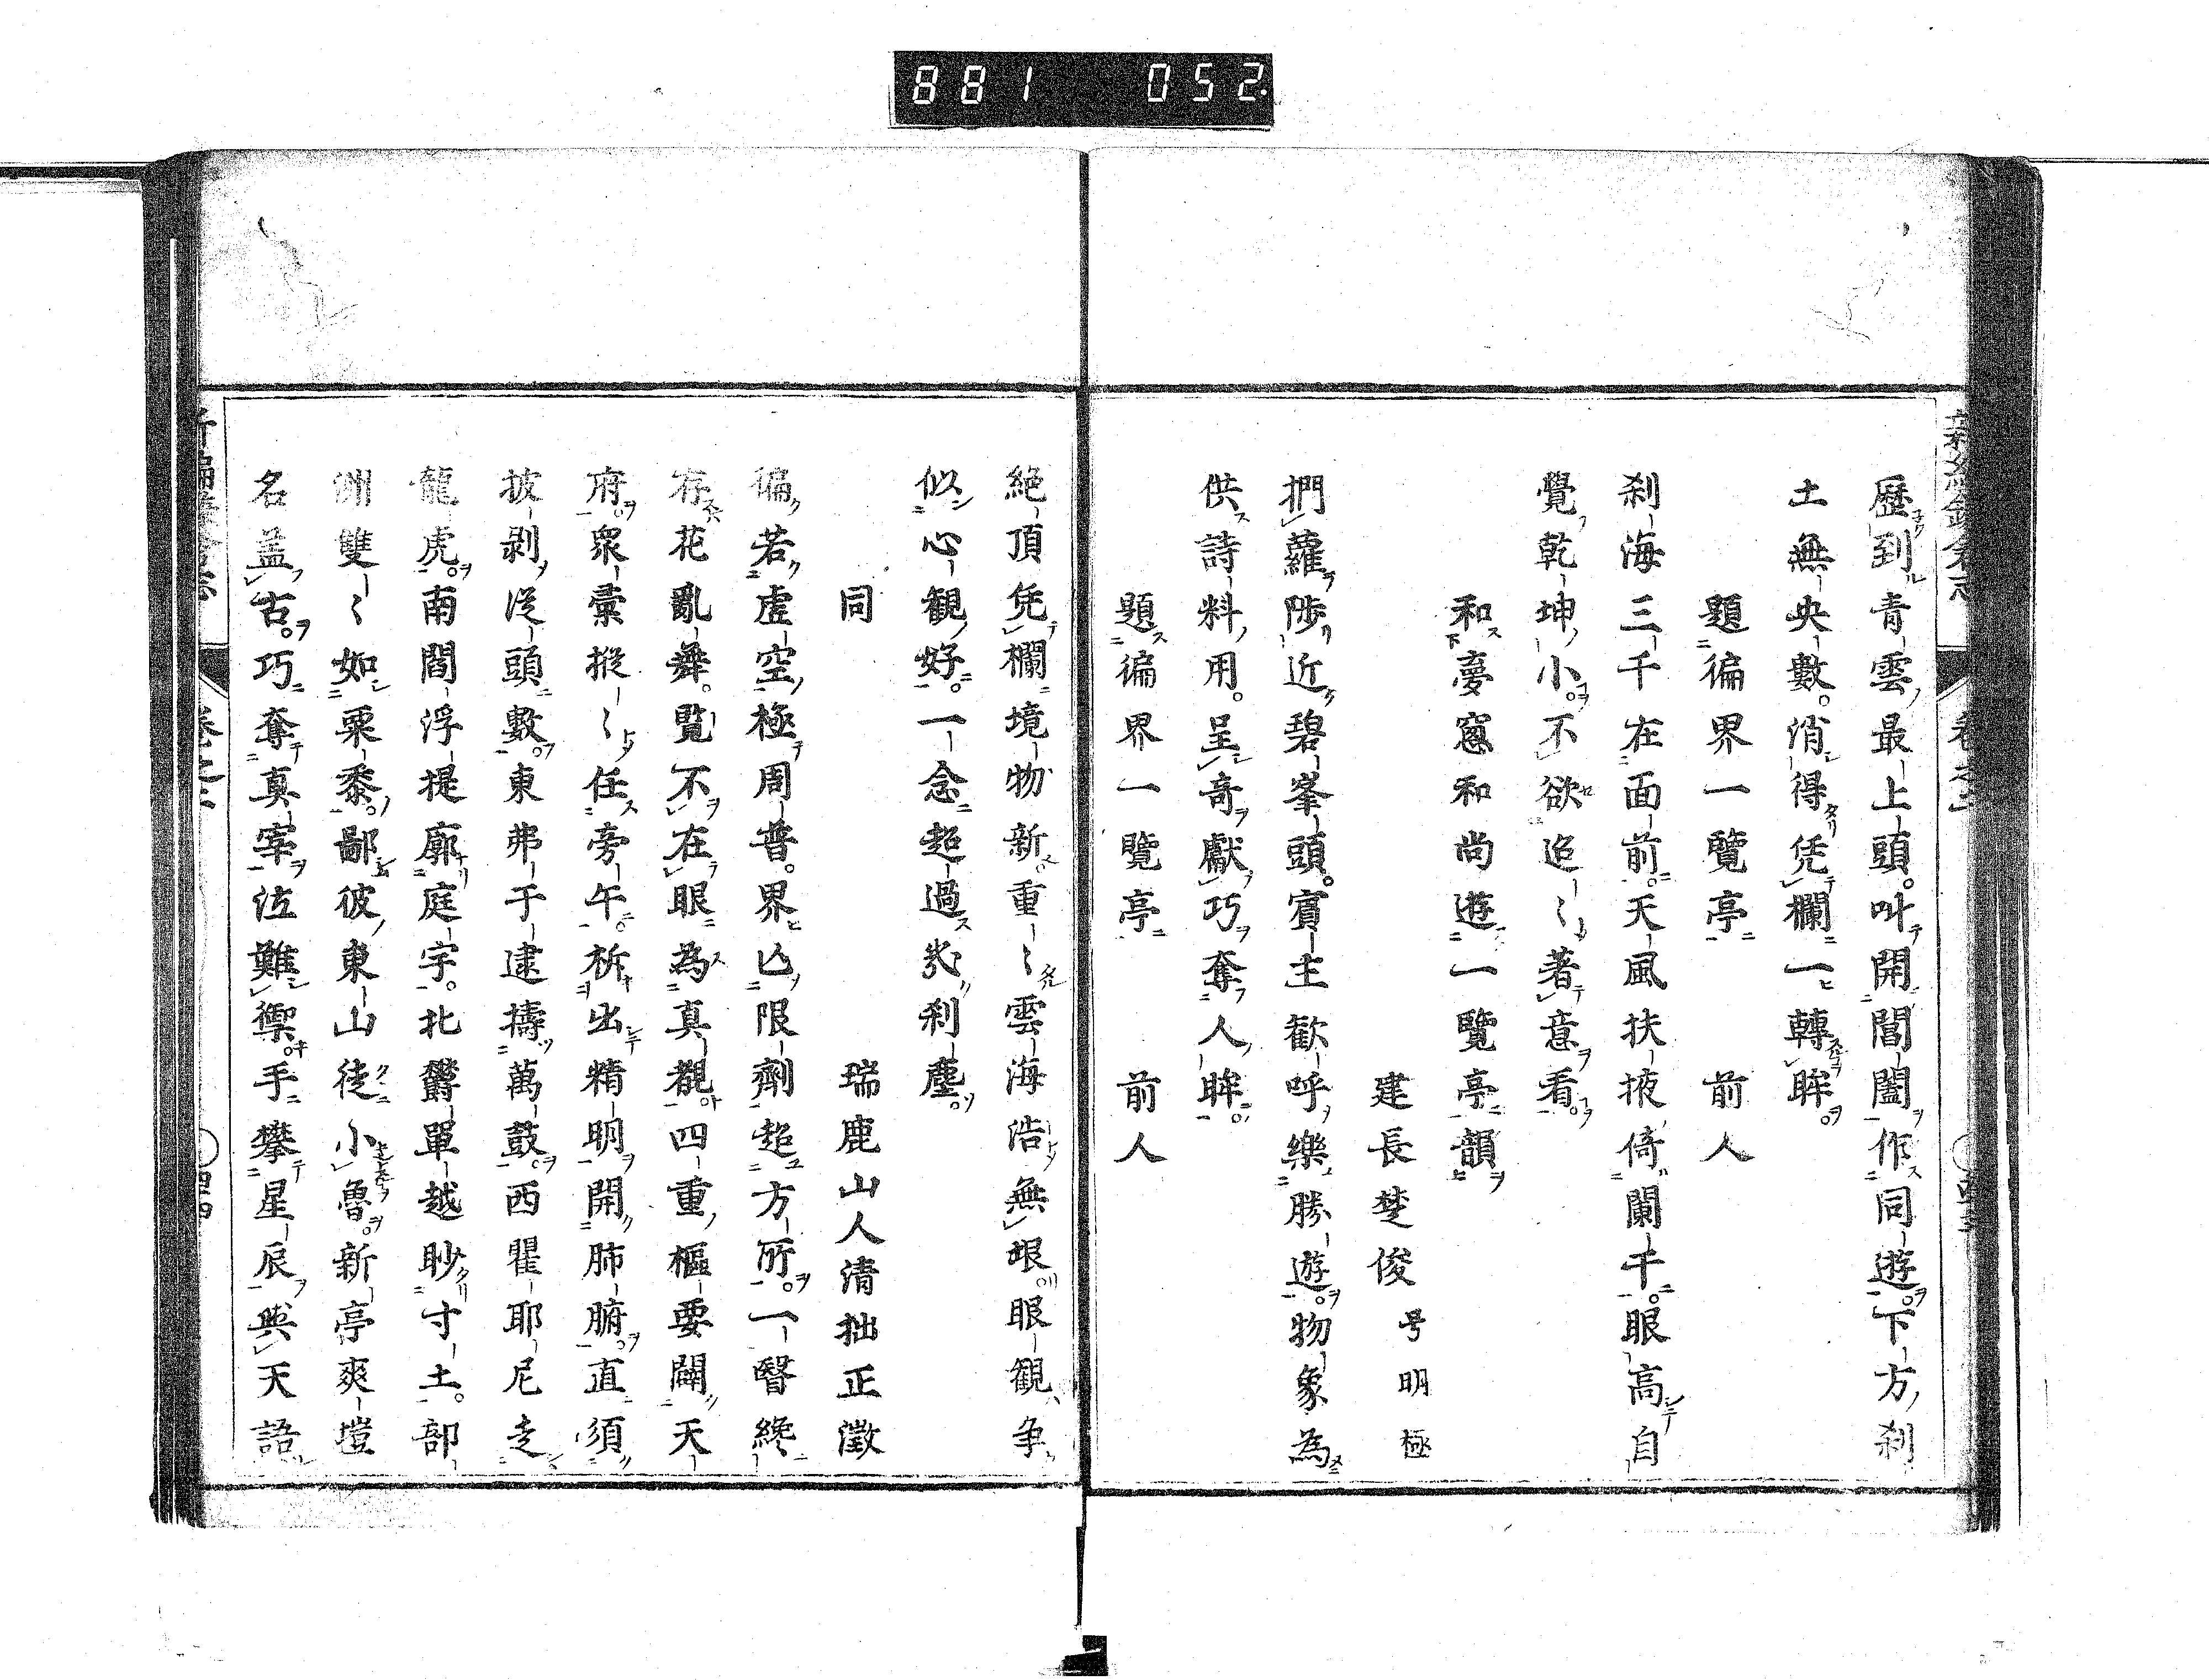 881 052
歷到青雲最上頭。叫開閶闔作同遊。下方刹
土無央數。消得凭欄一轉眸。
題徧界一覽亭 前人
刹海三千在面前。天風扶掖倚闌干。眼高自
覺乾坤小。不欲區〻著意看。
和夢窓和尚遊一覽亭韻
建長楚俊 号明極
捫蘿陟近碧峯頭。賓主歡呼樂勝遊。物象為
供詩料用。呈奇獻巧奪人眸。
題徧界一覽亭 前人
絕頂凭欄境物新。重〻雲海浩無垠。眼觀争
似心觀好。一念超過刹塵。
同 瑞鹿山人清拙正澂
徧若虛空極周普。界亡限劑超方所。一翳纔
存花亂舞。覽不在眼為真覩。四重樞要闢天
府。衆彙摐〻任旁午。析出精明開肺腑。直須
披剥從頭數。東弗于逮擣萬鼓。西瞿耶尼走
龍虎。南閻浮提廓庭宇。北欝單越眇寸土。部
洲雙〻如粟黍。鄙彼東山徒小魯。新亭爽塏
名盖古。巧奪真宰泣難禦。手攀星辰與天語